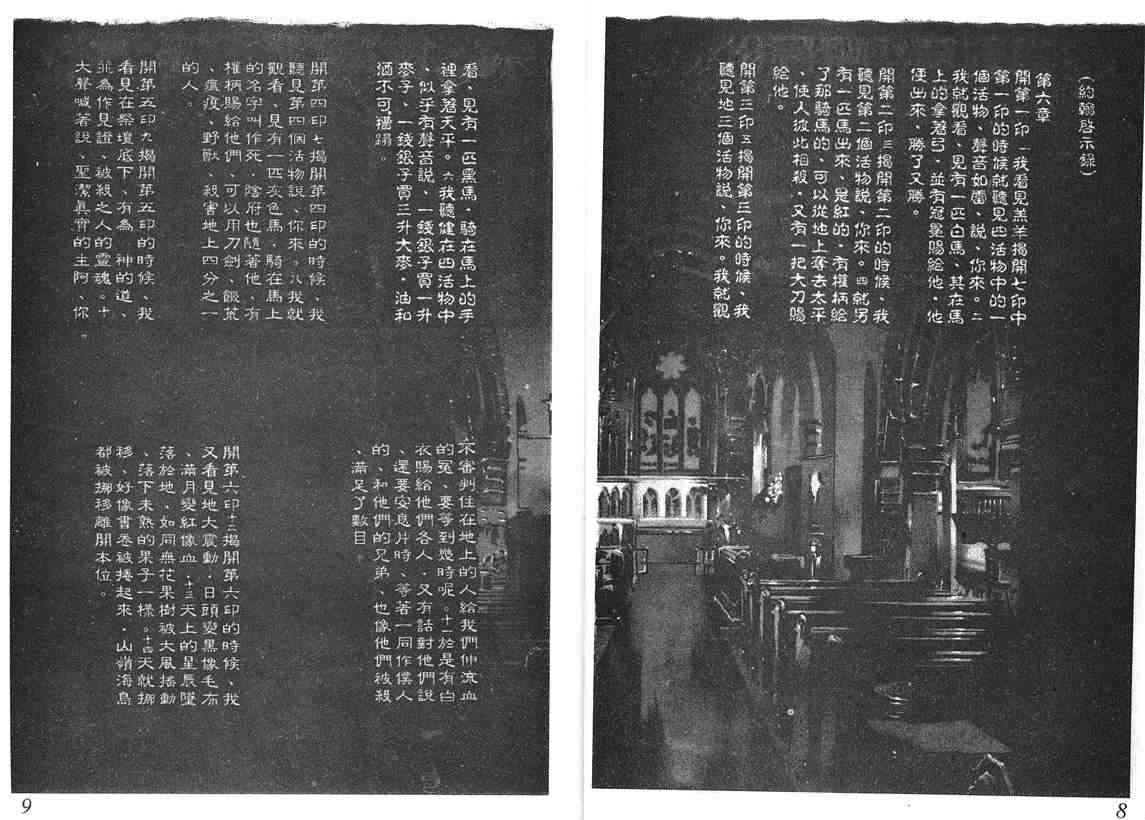 (約翰啓示錄)
第六章
開第一印一我看見羔羊揭開七印中
第一印的時候就聽見四活物中的一
個活物、聲音如雷、說、你來。二
我就觀看、見有一匹白馬、其在馬
上的拿著弓、並有冠冕賜給他、他
便出來、勝了又勝。
開第二印三揭開第二印的時候、我
聽見第二個活物說、你來。四就另
有一匹馬出來、是紅的、有權柄給
了那騎馬的、可以從地上奪去太平
、使人彼此相殺、又有一把大刀賜
給他。
開第三印五揭開第三印的時候、我
聽見地三個活物說、你來。我就觀
看、見有一匹黑馬．騎在馬上的手
裡拿著天平。六我聽健在四活物中
、似乎有聲音說、一錢銀子買一升
麥子、一錢銀子買三升大麥．油和
酒不可糟蹋。
開第四印七揭開第四印的時候、我
聽見第四個活物說、你來。八我就
觀看、見有一匹灰色馬．騎在馬上
的名字叫作死．陰府也隨著他、有
權柄賜給他們、可以用刀劍、饑荒
、瘟疫、野獸、殺害地上四分之一
的人。
開第五印九揭開第五印的時候、我
看見在祭壇底下、有為　神的道、
並為作見證、被殺之人的靈魂。十
大聲喊著說、聖潔真實的主阿、你
不審判住在地上的人給我們伸流血
的冤、要等到幾時呢。十一於是有白
衣賜給他們各人．又有話對他們說
、還要安息片時、等著一同作僕人
的、和他們的兄弟、也像他們被殺
、滿足了數目。
開第六印十二揭開第六印的時候、我
又看見地大震動．日頭變黑像毛布
、滿月變紅像血．十三天上的星辰墜
落於地、如同無花果樹被大風搖動
、落下未熟的果子一樣。十四天就挪
移、好像書卷被捲起來．山嶺海島
都被挪移離開本位。
9
8